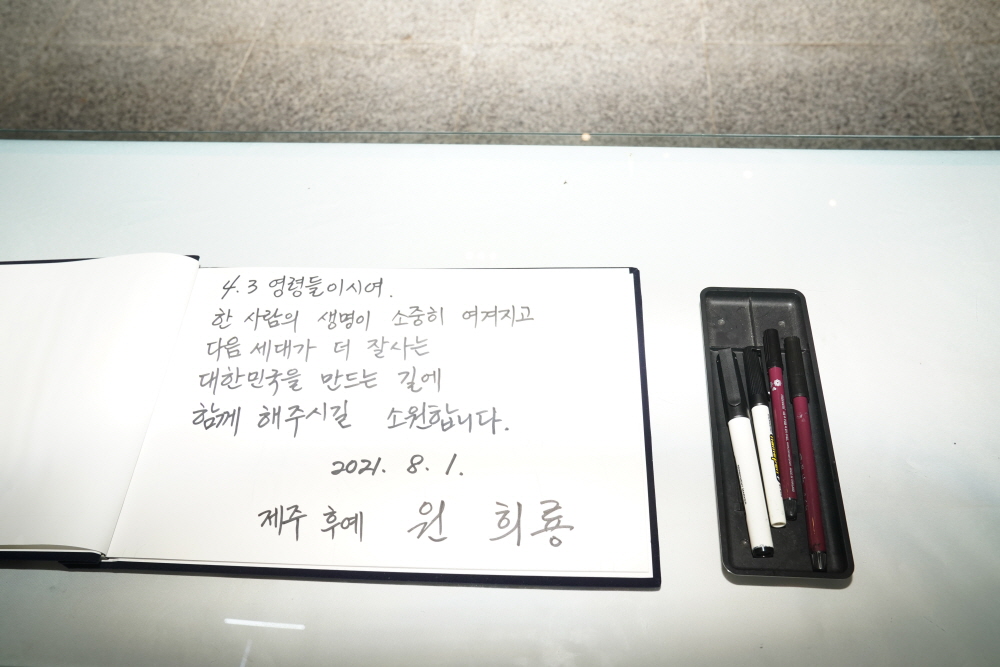 4.3 영령들이시여.
한 사람의 생명이 소중히 여겨지고
다음 세대가 더 잘사는
대한민국을 만드는 길에
함께 해주시길 소원합니다.
2021. 8. 1.
제주 후예 원 희룡